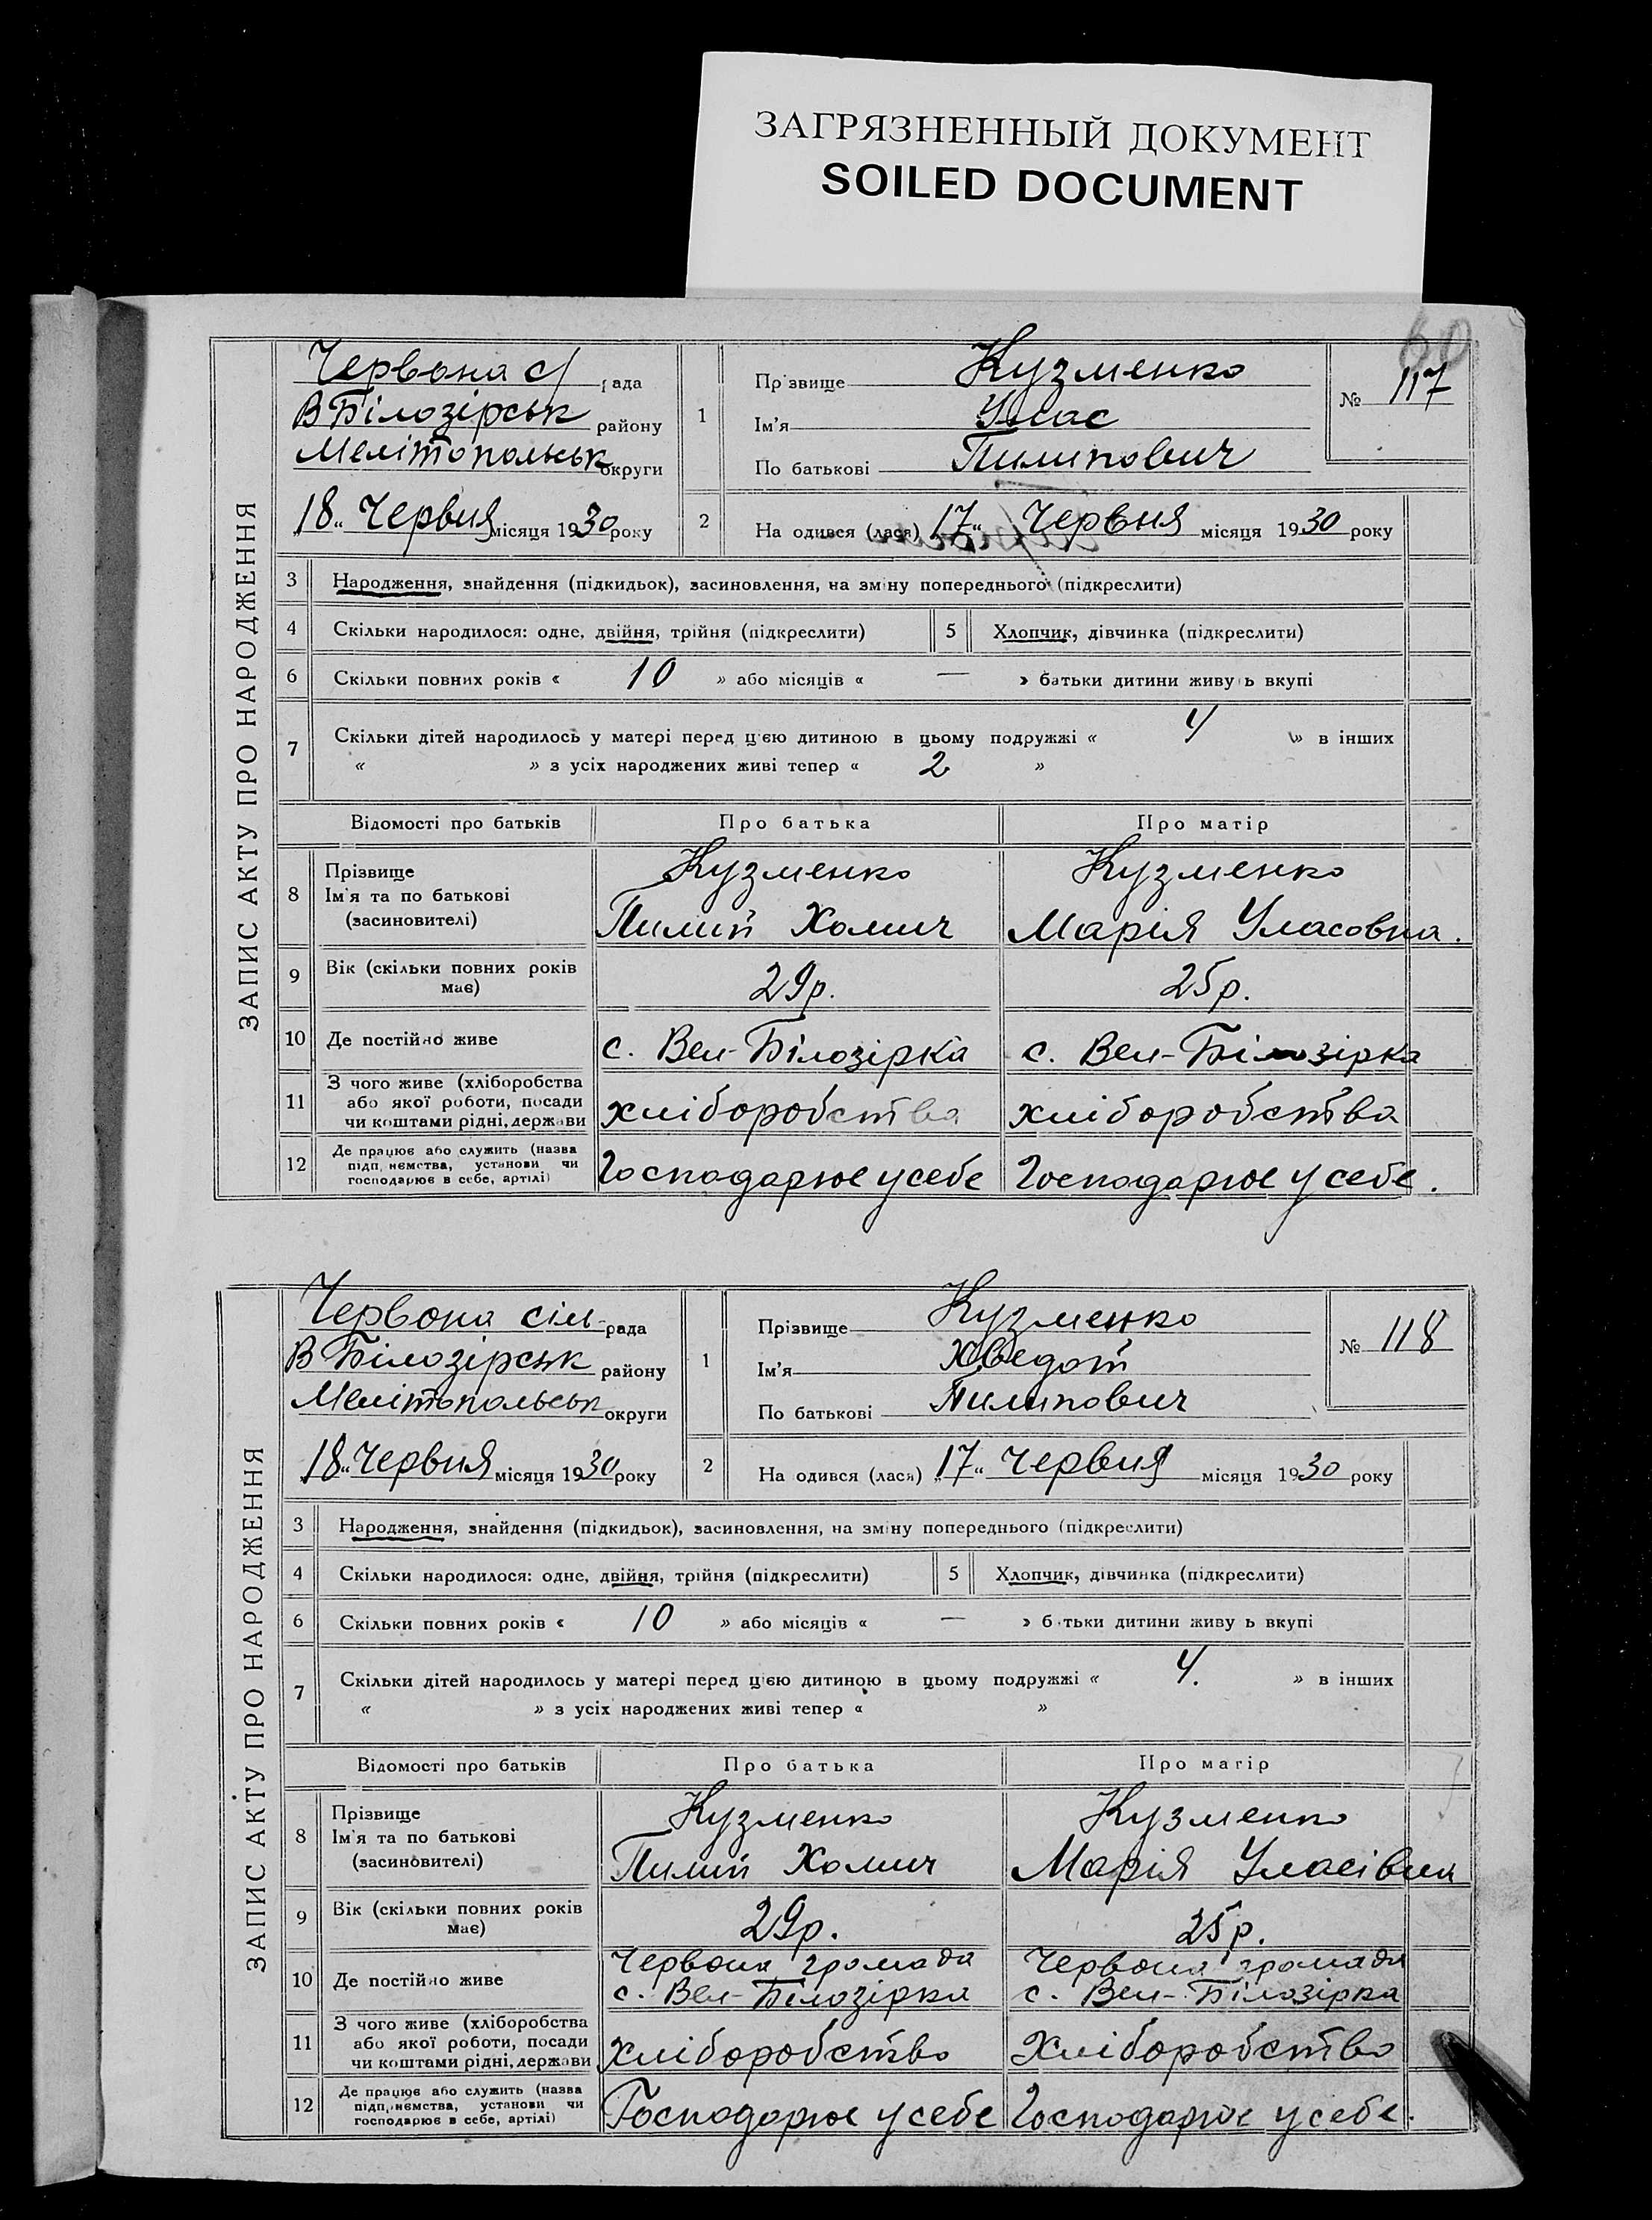 ЗАГРЯЗНЕННЫЙ ДОКУМЕНТ
SOILED DOCUMENT
60
ЗАПИС АКТУ ПРО НАРОДЖЕННЯ
Червона с/ рада
В Білозірськ району
Мелітопольськ округи
„18“ Червня місяця 1930 року
1
Прізвище Кузменко
Ім'я Улас
По батькові Пилипович
№ 117
2 На одився (лася) „17“ Червня місяця 1930 року
3 Народження, знайдення (підкидьок), засиновлення, на зміну попереднього (підкреслити)
4 Скільки народилося: одне, двійня, трійня (підкреслити) 5 Хлопчик, дівчинка (підкреслити)
6 Скільки повних років « 10 » або місяців « — » батьки дитини живу ь вкупі
7 Скільки дітей народилось у матері перед цією дитиною в цьому подружжі « 4 » в інших
« » з усіх народжених живі тепер « 2 »
Відомості про батьків Про батька Про матір
8 Прізвище Ім'я та по батькові (засиновителі) Кузменко Пилип Хомич Кузменко Марія Уласовна.
9 Вік (скільки повних років має) 29р. 25р.
10 Де постійно живе с. Вел-Білозірка с. Вел-Білозірка
11 З чого живе (хліборобства або якої роботи, посади чи коштами рідні, держави хліборобства хліборобства
12 Де працює або служить (назва підп. ємства, установи чи господарює в себе, артілі) Господарює у себе Господарює у себе.
ЗАПИС АКТУ ПРО НАРОДЖЕННЯ
Червона сіль- рада
В Білозірськ району
Мелітопольськ округи
„18“ Червня місяця 1930 року
1
Прізвище Кузменко
Ім'я Хведот
По батькові Пилипович
№ 118
2 На одився (лася) „17“ Червня місяця 1930 року
3 Народження, знайдення (підкидьок), засиновлення, на зміну попереднього (підкреслити)
4 Скільки народилося: одне, двійня, трійня (підкреслити) 5 Хлопчик, дівчинка (підкреслити)
6 Скільки повних років « 10 » або місяців « — » б тьки дитини живу ь вкупі
7 Скільки дітей народилось у матері перед цією дитиною в цьому подружжі « 4. » в інших
« » з усіх народжених живі тепер « »
Відомості про батьків Про батька Про матір
8 Прізвище Ім'я та по батькові (засиновителі) Кузменко Пилип Хомич Кузменко Марія Уласівна
9 Вік (скільки повних років має) 29р. 25р.
10 Де постійно живе Червона громада с. Вел-Білозірка Червона громада с. Вел-Білозірка
11 З чого живе (хліборобства або якої роботи, посади чи коштами рідні, держави хліборобство Хліборобство
12 Де працює або служить (назва підпр. ємства, установи чи господарює в себе, артілі) Господарює у себе Господарює у себе.